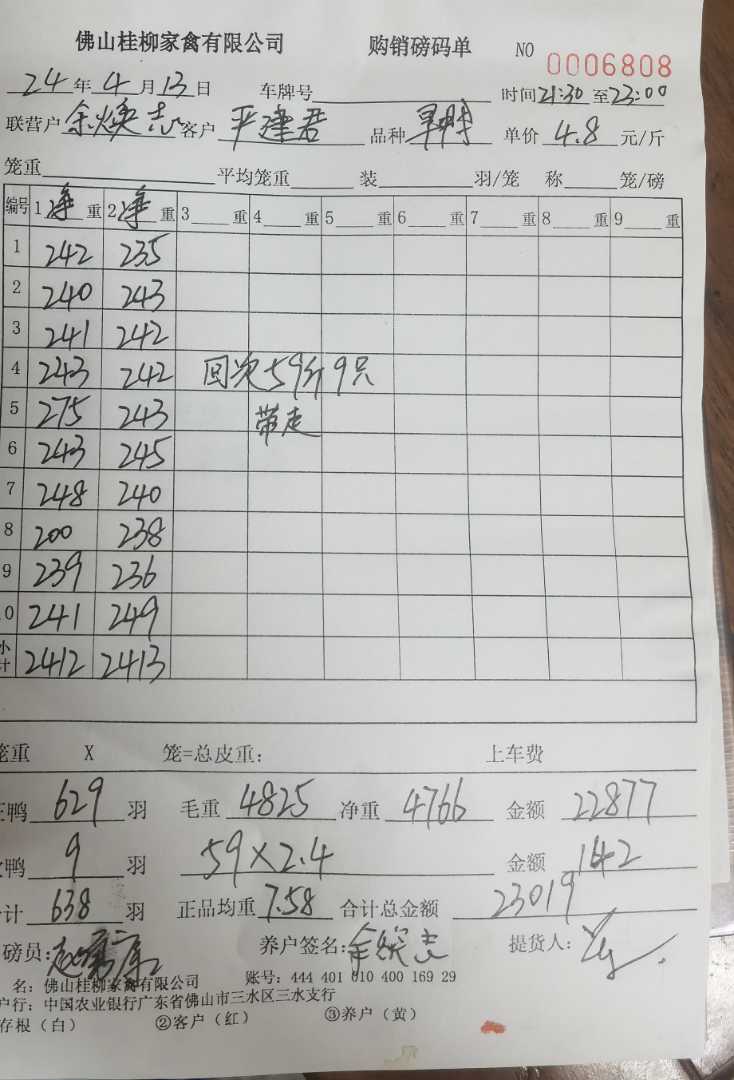 佛山桂柳家禽有限公司 购销磅码单 NO 0006808
24年4月13日 车牌号 时间21:30至23:00
联营户余焕志客户严建君 品种 单价4.8元/斤
笼重 平均笼重 装 羽/笼 称 笼/磅
编号 1净重 2净重 3 重 4 重 5 重 6 重 7 重 8 重 9 重
1 242 235
2 240 243
3 241 242
4 243 242 回次59斤9只
5 275 243 带走
6 243 245
7 248 240
8 200 238
9 239 236
0 241 249
小计 2412 2413
笼重 X 笼=总皮重: 上车费
正鸭629羽 毛重4825净重4766 金额22877
鸭9羽 59×2.4 金额142
计638羽 正品均重7.58 合计总金额23019
磅员: 养户签名:余焕志 提货人:
名:佛山桂柳家禽有限公司 账号:444 401 010 400 169 29
户行:中国农业银行广东省佛山市三水区三水支行
存根(白) ②客户(红) ③养户(黄)